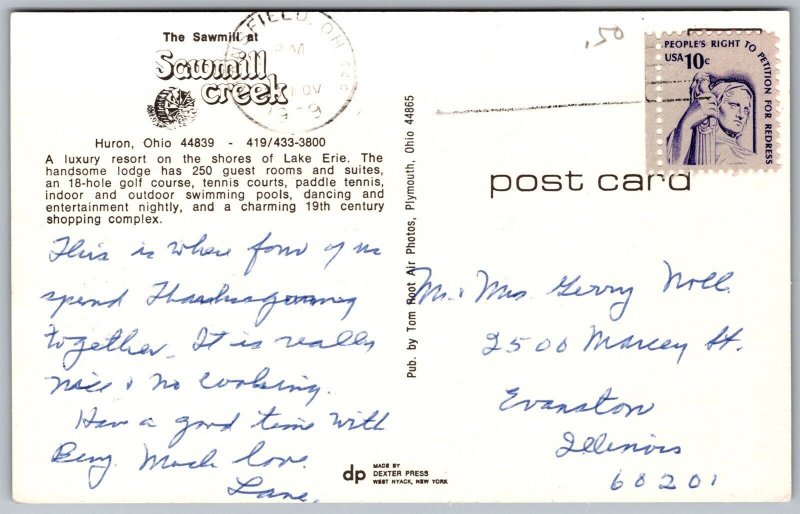 The Sawmill at
Sawmill
creek
Huron, Ohio 44839 - 419/433-3800
A luxury resort on the shores of Lake Erie. The
handsome lodge has 250 guest rooms and suites,
an 18-hole golf course, tennis courts, paddle tennis,
indoor and outdoor swimming pools, dancing and
entertainment nightly, and a charming 19th century
shopping complex.
This is where four of us
spend Thanksgiving
together. It is really
nice & no cooking.
Have a good time with
Much love.
FIELD, OH
PM
NOV
.50
PEOPLE'S RIGHT TO PETITION FOR REDRESS
USA 10c
post card
Pub. by Tom Root Air Photos, Plymouth, Ohio 44865
Mr. & Mrs Gerry Noll
2500 Marcey St.
Evanston
Illinois
60201
dp
MADE BY
DEXTER PRESS
WEST NYACK, NEW YORK